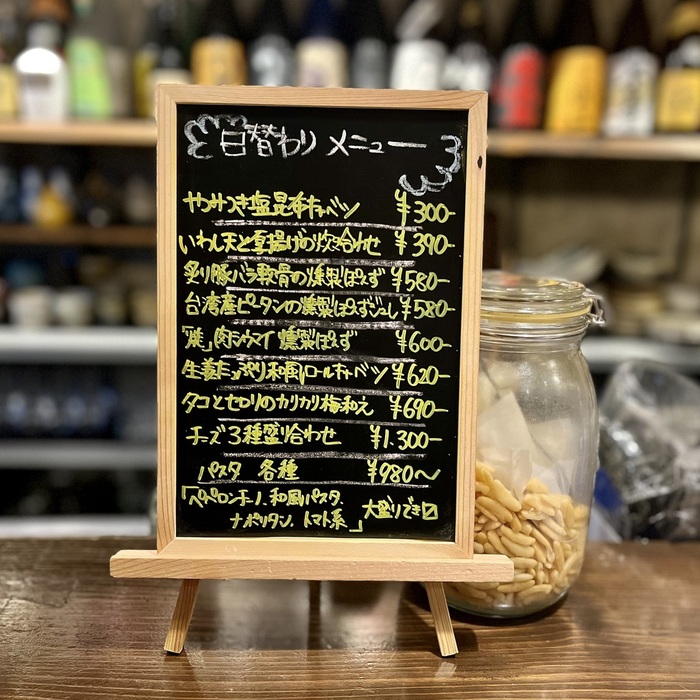 日替わりメニュー
やみつき塩昆布キャベツ ¥300-
いわし天と厚揚げの炊き合わせ ¥390-
炙り豚バラ軟骨の燻製ぽんず ¥580-
台湾産ピータンの燻製ぽんずジュレ ¥580-
「焼」肉シウマイ 燻製ぽんず ¥600-
生姜たっぷり和風ロールキャベツ ¥620-
タコとセロリのカリカリ梅和え ¥690-
チーズ3種盛り合わせ ¥1.300-
パスタ 各種 ¥980〜
「ペペロンチーノ、和風パスタ、
ナポリタン、トマト系」 大盛りでき〼